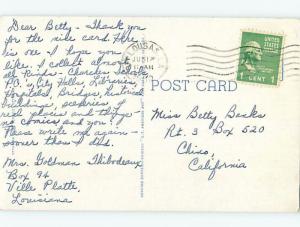 Dear Betty - Thank you
for the nice card. Here is
one. I hope you
like. I collect almost
all kinds - Churches, Schools,
P.O., City Halls, Libraries,
Hospitals, Bridges, historical
buildings, sceneries of
real places and things -
no comics and you?
Please write me again -
sooner than I did.
Mrs. Goldman Thibodeaux
Box 94
Ville Platte,
Louisiana
POST CARD
1 CENT 1
Miss Betty Beeks
Rt. 3 Box 520
Chino,
California